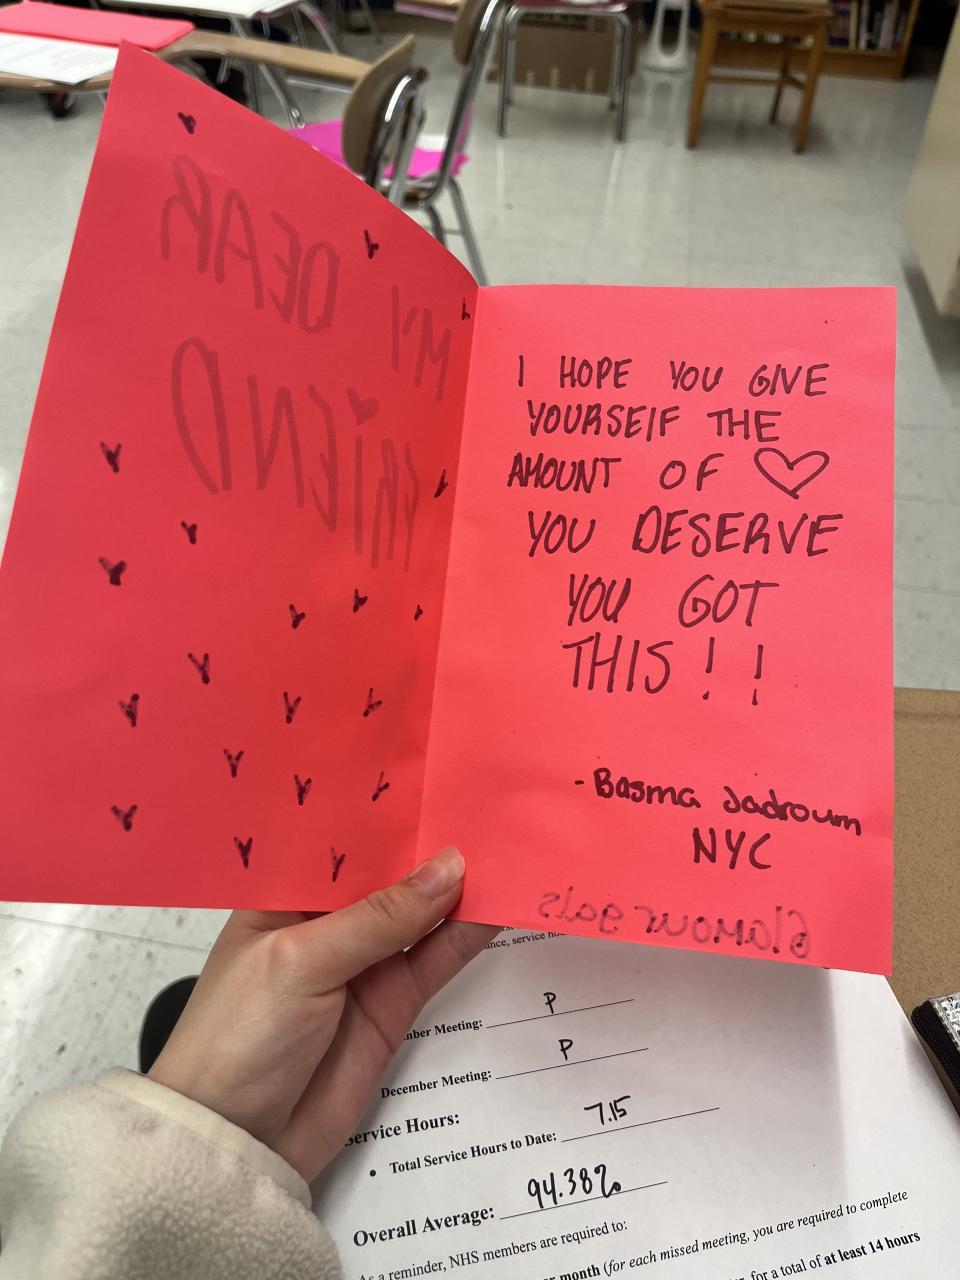 DEAR
MY
FRIEND
I HOPE YOU GIVE
YOURSElF THE
AMOUNT OF ♡
YOU DESERVE
YOU GOT
THIS!!
-Basma Jadroum
NYC
Glamour gals
ance, service ho
mber Meeting: P
December Meeting: P
Service Hours:
• Total Service Hours to Date: 7.15
Overall Average: 94.38%
As a reminder, NHS members are required to:
r month (for each missed meeting, you are required to complete
for a total of at least 14 hours